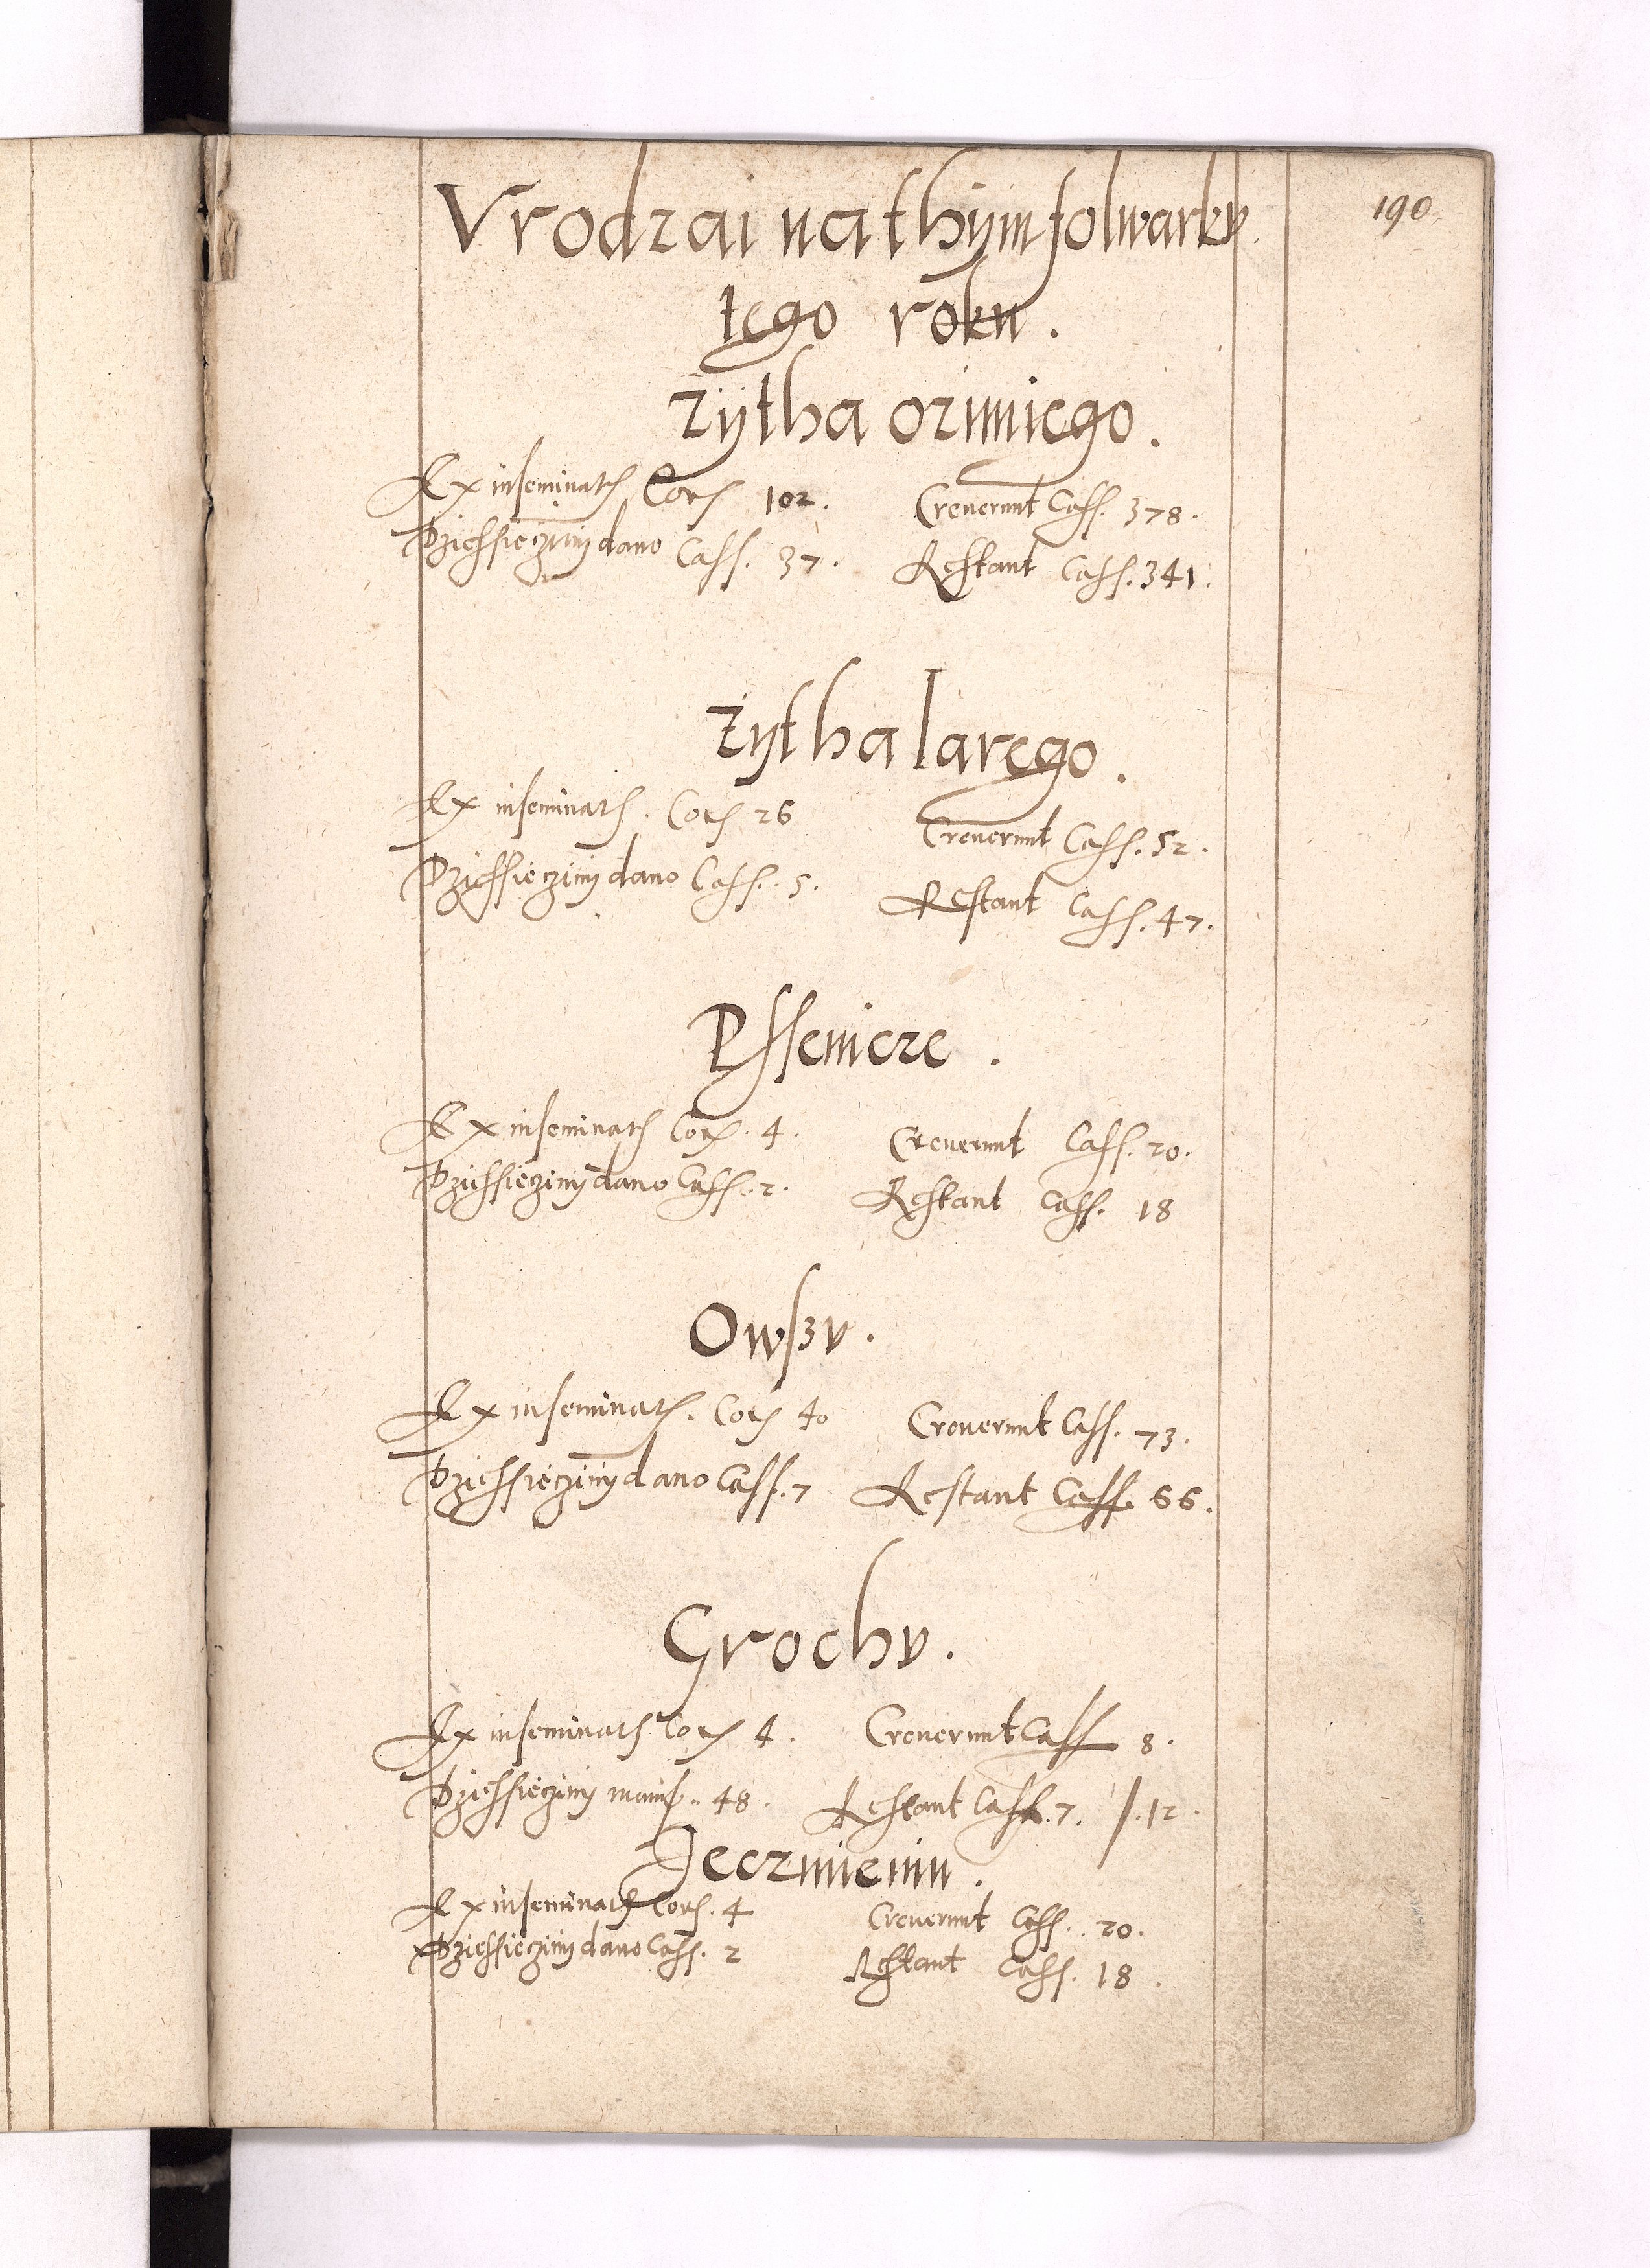 190
Vrodzai na thÿm folwarkv
tego roku.
Zÿtha ozimiego.
Ex inseminatis Cor 102. Creuerunt Cass. 378.
Dziessieczinÿ dano Cass. 37. Restant Cass. 341.
Zÿtha Iarego.
Ex inseminatis. Cor 26 Creuerunt Cass. 52.
Dziessieczinÿ dano Cass. 5. Restant Cass. 47.
Pssenicze.
Ex inseminatis Cor. 4. Creuerunt Cass. 20.
Dziessieczinÿ dano Cass. 2. Restant Cass. 18
Owszv.
Ex inseminatis. Cor 40 Creuerunt Cass. 73.
Dziessieczinÿ dano Cass. 7 Restant Cass. 66.
Grochv.
Ex inseminatis Cor 4. Creuerunt Cass 8.
Dziessieczinÿ 48. Restant Cass. 7. /. 12.
Jeczmieniu.
Ex inseminatis Cor. 4 Creuerunt Cass. 20.
Dziessieczinÿ dano Cass. 2 Restant Cass. 18.